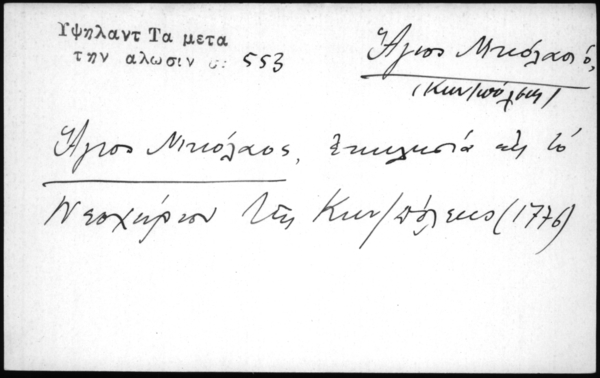 Υψηλαντ Τα μετα
την αλωσιν σ: 553
Ἅγιος Νικόλαος ὁ,
(Κων/πόλεως)
Ἅγιος Νικόλαος, Ἐκκλησία εἰς τό
Νεοχώριον τῆς Κων/πόλεως (1776)